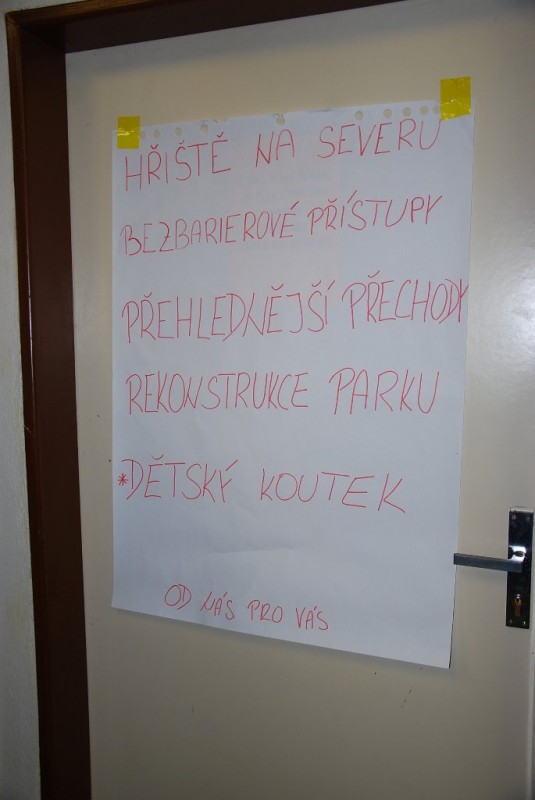 HŘIŠTĚ NA SEVERU
BEZBARIEROVÉ PŘÍSTUPY
PŘEHLEDNĚJŠÍ PŘECHODY
REKONSTRUKCE PARKU
*DĚTSKÝ KOUTEK
OD NÁS PRO VÁS